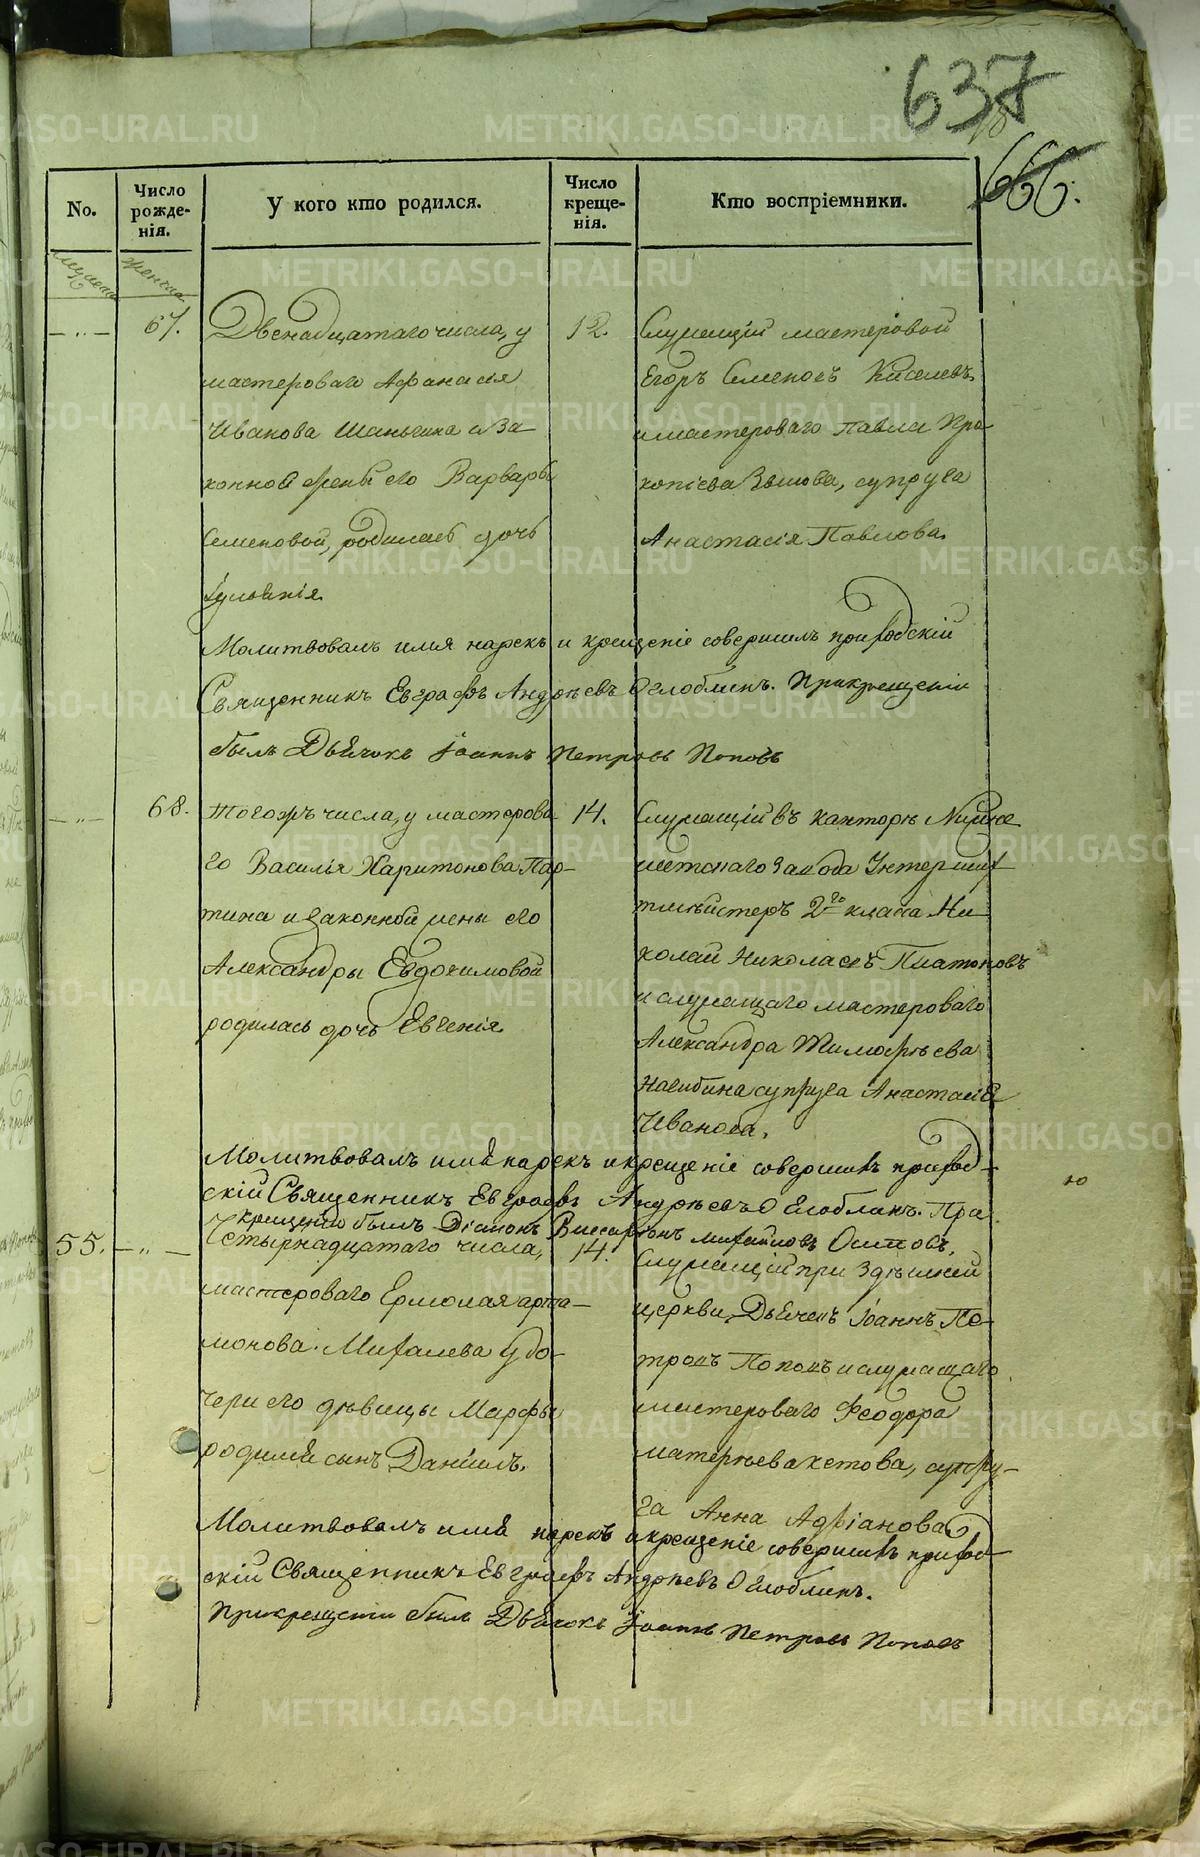 637
666.
No.
Число рожде-нія.
У кого кто родился.
Число креще-нія.
Кто воспріемники.
67.
Двенадцатаго числа, у
мастероваго Афанасія
Иванова Шаньгина и За
конной жены его Варвары
Семеновой, родилась дочь
Іуліанія
12.
Служащій мастеровой
Егоръ Семеновъ Киселевъ
и мастероваго Павла Про
копіева Зыкова, супруга
Анастасія Павлова.
Молитвовалъ имя нарекъ и крещеніе совершилъ приходскій
Священникъ Евграфъ Андрѣевъ Оглоблинъ. При крещеніи
былъ Дьячокъ Іоаннъ Петровъ Поповъ
68.
Тогожъ числа, у мастерова
го Василья Харитонова Пар-
тина и законной жены его
Александры Евдокимовой
родилась дочь Евгенія
14.
Служащій въ канторѣ Нижне
исетскаго Завода Унтерших
тмейстеръ 2го класа Ни
колай Николаевъ Платоновъ
и служащаго мастероваго
Александра Тимофѣева
Нагибина супруга Анастасія
Иванова.
Молитвовалъ имя нарекъ и крещеніе совершилъ приход-
скій Священникъ Евграфъ Андрѣевъ Оглоблинъ. При
крещеніи былъ Діаконъ Виссаріонъ Михайловъ Осиповъ.
55.
Четырнадцатаго числа,
мастероваго Ермолая арта-
монова Михалева у до-
чери его дѣвицы Марфы
родился сынъ Даніилъ.
14.
Служащій при Здѣшней
церкви, Дьячекъ Іоаннъ Пе-
тровъ Поповъ и служащаго
мастероваго Феодора
супру-
га Анна Адріанова
Молитвовалъ имя нарекъ и крещеніе совершилъ приход-
скій Священникъ Евграфъ Андрѣевъ Оглоблинъ.
При крещеніи былъ Дьячокъ Іоаннъ Петровъ Поповъ
ю
METRIKI.GASO-URAL.RU